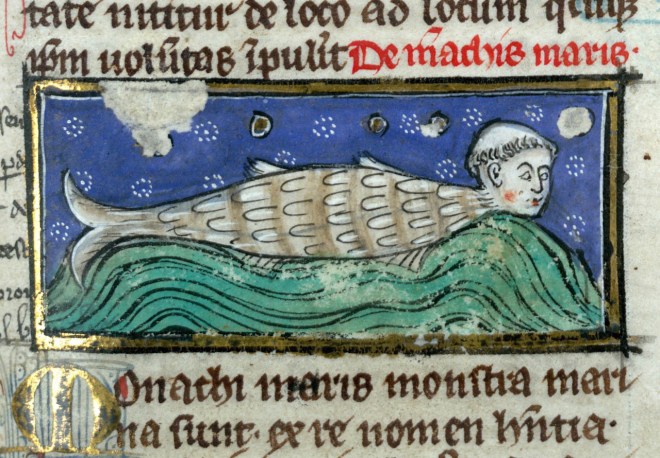 tate nititur de loco ad locum
ipm uolūtas īpulit De mōachis maris·
Monachi maris monstra mari
na sunt· ex re nomen hn̄tia·